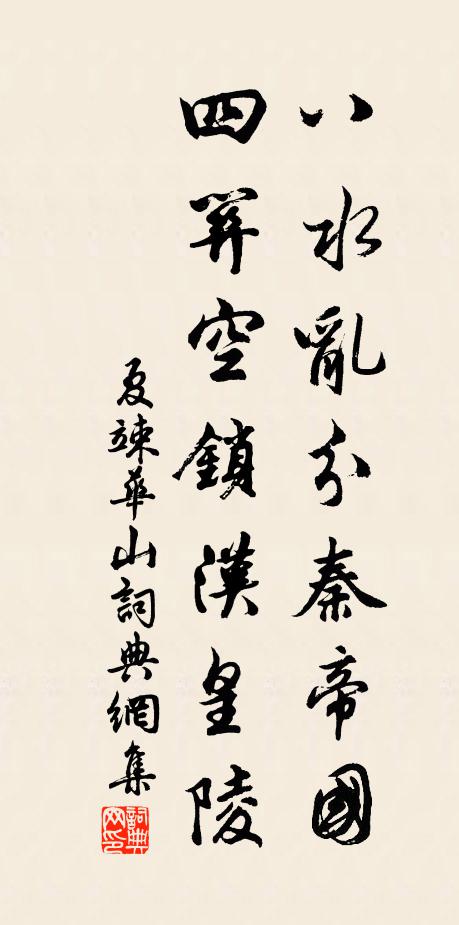 八水亂分秦帝國
四關空鎖漢皇陵
夏竦華山詞典網集
詞典網印